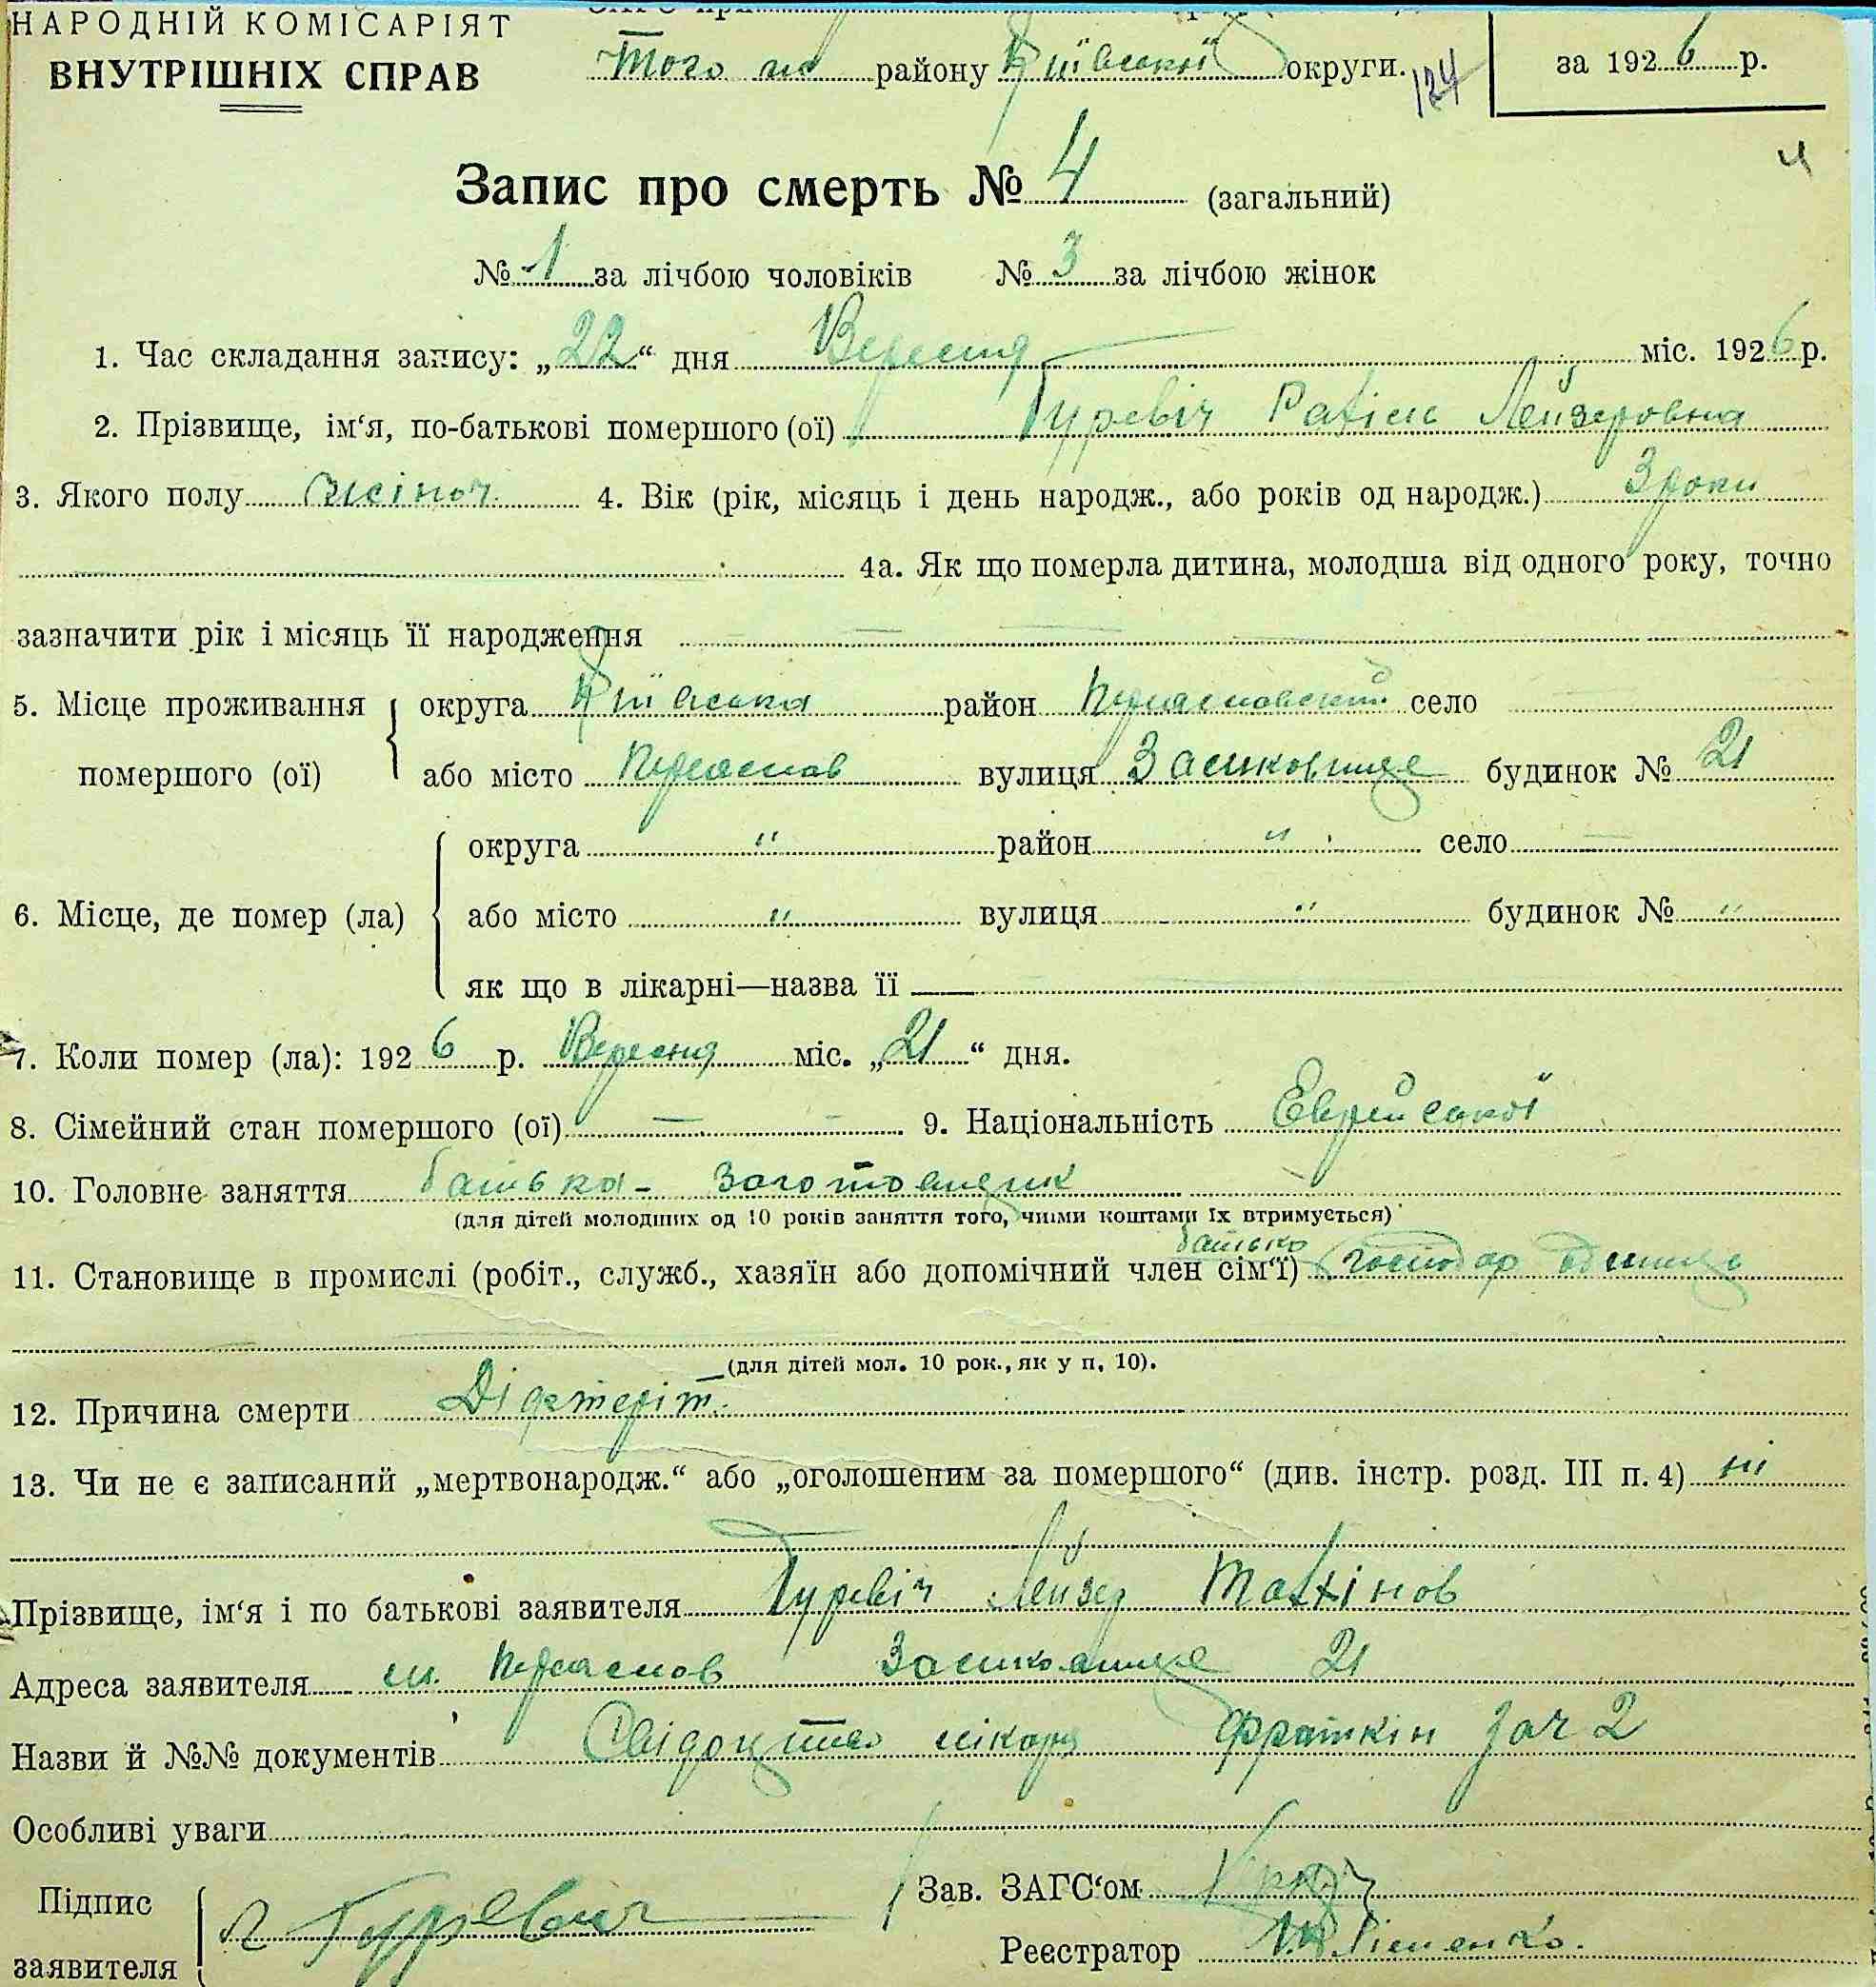 НАРОДНІЙ КОМІСАРІЯТ
ВНУТРІШНІХ СПРАВ
Того ж району Київської округи.
124
за 1926 р.
4
Запис про смерть № 4 (загальний)
№ 1 за лічбою чоловіків № 3 за лічбою жінок
1. Час складання запису: „22“ дня Вересня міс. 1926 р.
2. Прізвище, ім‘я, по-батькові помершого (ої) Гуревіч Рахіль Лейзеровна
3. Якого полу жіноч. 4. Вік (рік, місяць і день народж., або років од народж.) 3 роки
4а. Як що померла дитина, молодша від одного року, точно
зазначити рік і місяць її народження
5. Місце проживання помершого (ої) округа Київська район Переяславский село
або місто Переяслав вулиця будинок № 21
6. Місце, де помер (ла) округа " район " село —
або місто " вулиця " будинок № "
як що в лікарні—назва її
7. Коли помер (ла): 1926 р. Вересня міс. „21“ дня.
8. Сімейний стан помершого (ої) — 9. Національність Еврейської
10. Головне заняття батька - заготовщик
(для дітей молодших од 10 років заняття того, чиїми коштами їх втримується)
11. Становище в промислі (робіт., служб., хазяїн або допомічний член сім‘ї) батько господар
(для дітей мол. 10 рок., як у п, 10).
12. Причина смерти Діфтеріт.
13. Чи не є записаний „мертвонародж.“ або „оголошеним за помершого“ (див. інстр. розд. III п. 4) ні
Прізвище, ім‘я і по батькові заявителя Гуревіч Лейзер
Адреса заявителя м. Переяслав 21
Назви й №№ документів Свідоцтво лікаря Фраткін за ч 2
Особливі уваги
Підпис заявителя Л Гуревич
Зав. ЗАГС‘ом
Реєстратор